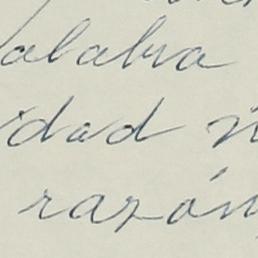 palabra
idad
razón